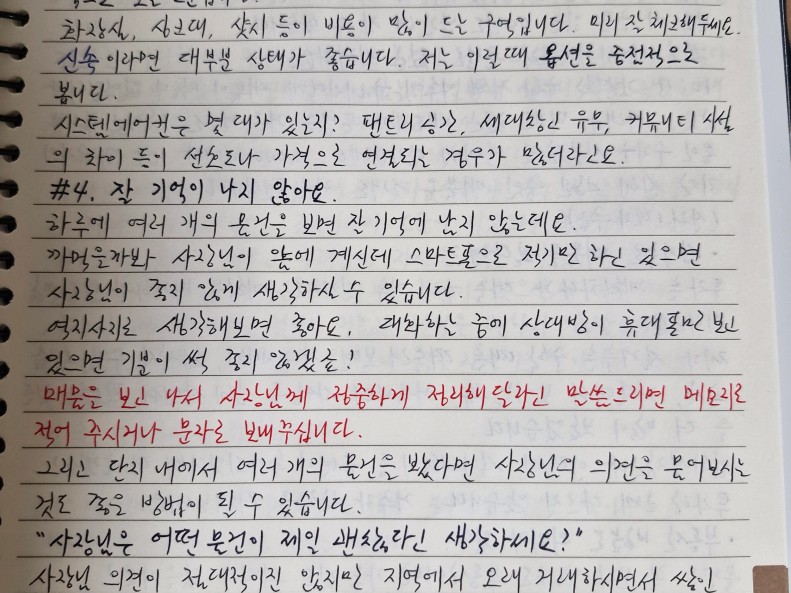 화장실, 싱크대, 샷시 등이 비용이 많이 드는 구역입니다. 미리 잘 체크해두세요.
신축이라면 대부분 상태가 좋습니다. 저는 이럴때 옵션을 중점적으로
봅니다.
시스템에어컨은 몇 대가 있는지? 팬트리공간, 세대창고 유무, 커뮤니티 시설
의 차이 등이 선호도나 가격으로 연결되는 경우가 많더라고요.
#4. 잘 기억이 나지 않아요.
하루에 여러 개의 물건을 보면 잘 기억에 남지 않는데요.
까먹을까봐 사장님이 앞에 계신데 스마트폰으로 적기만 하고 있으면
사장님이 좋지 않게 생각하실 수 있습니다.
역지사지로 생각해보면 좋아요. 대화하는 중에 상대방이 휴대폰만 보고
있으면 기분이 썩 좋지 않겠죠!
매물을 보고 나서 사장님께 정중하게 정리해달라고 말씀드리면 메모지로
적어 주시거나 문자로 보내주십니다.
그리고 단지 내에서 여러 개의 물건을 봤다면 사장님의 의견을 물어보시는
것도 좋은 방법이 될 수 있습니다.
"사장님은 어떤 물건이 제일 괜찮다고 생각하세요?"
사장님 의견이 절대적이진 않지만 지역에서 오래 거래하시면서 쌓인